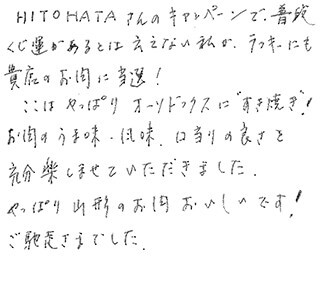 HITOHATAさんのキャンペーンで、普段
くじ運があるとは言えない私が、ラッキーにも
貴店のお肉に当選！
ここはやっぱりオーソドックスに"すき焼き"！
お肉のうま味、風味、口当りの良さと
充分楽しませていただきました。
やっぱり山形のお肉おいしいです！
ご馳走さまでした。